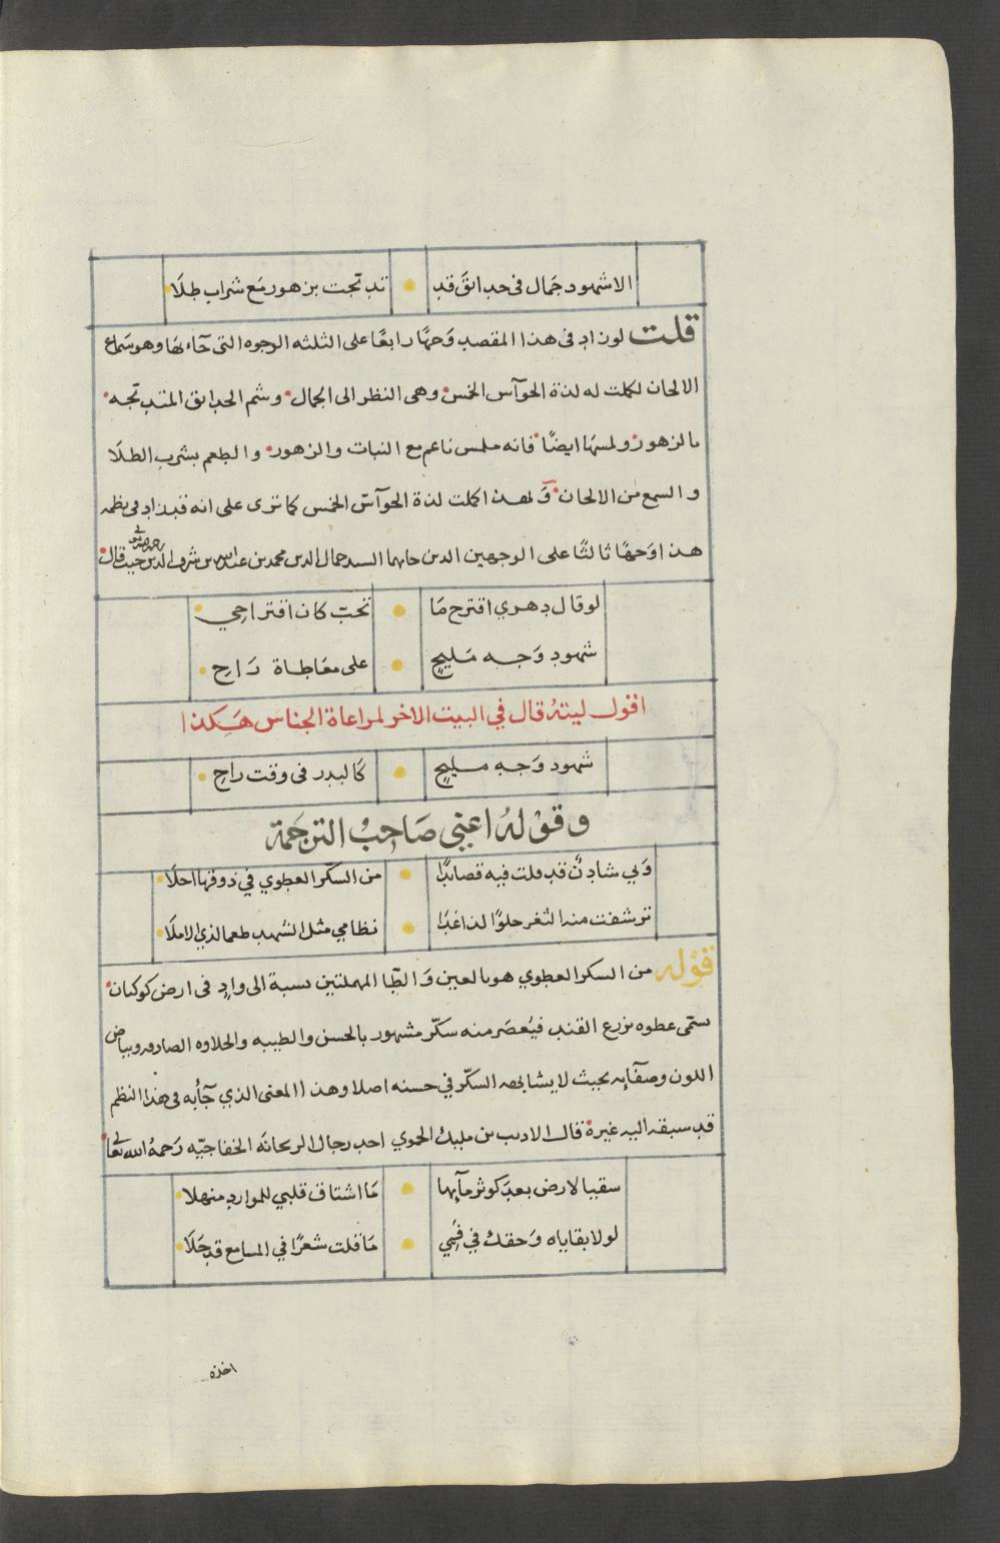 الا شهود جمال في حدائق قد * تدبّجت بزهور مع شراب طلَا
قلت لو زاد في هذا المقصد وَجهًا رابعًا على الثلثه الوجوه التى جَآء بها وهو سَماع
الالحان لكملت له لذة الحوآس الخمس وهى النظر الى الجمال وشم الحدائق المتدبّجه
بالزهور ولمسهَا ايضًا فانه ملمس ناعم مع النبات والزهور والطعم بشرب الطلَا
والسمع من الالحان وَبهذا كملت لذة الحوآسّ الخمس كما ترى على انه قد زاد في نظمه
هذا وَجهًا ثالثًا على الوجهين الذين جابهما السيد جمال الدين محمد بن عبد الله بن شرف الدين حيث قال
لو قال دهري اقترح مَا * تحبّ كان اقتراحِي
شهود وَجه مَليحٍ * على معَاطاة رَاحِ
اقول ليته قال في البيت الاخر لمراعاة الجناس هَكذا
شهود وَجهِ مليحٍ * كَالبدر فى وقت راحِ
وقوْلهُ اعنِي صَاحِبُ الترجَمة
وَلي شادنٌ قد قلت فيه قصائدًا * من السكّر العطوي في ذوقها احلَا
ترشفت منه الثغر حلوًا لذا غدَا * نظامي مثل الشهد طعما لذي الاملَا
قوْله من السكر العطوي هو بالعين وَالطّا المهملتين نسبة الى وادٍ في ارض كوكبان
يسمّى عطوه يزرع القند فيُعصَر منه سكّر مشهور بالحسن والطيبه والحلاوه الصادقه وبياض
اللون وصفآئه بحيث لا يشابهه السكّر في حسنه اصلا وهذا المعنى الذي جَآبه في هذا النظم
قد سبقه اليه غيره قال الاديب بن مليك الحموي احد رجال الريحانَه الخفاجيّه رَحمهُ الله تعَالى
سقيا لارض بعدَ كوثر مآئها * مَا اشتاق قلبي للموارد منهلا
لولا بقاياه وَحقك في فَمِي * مَا قلت شعرًا في المسامع قد حَلَا
اخذه